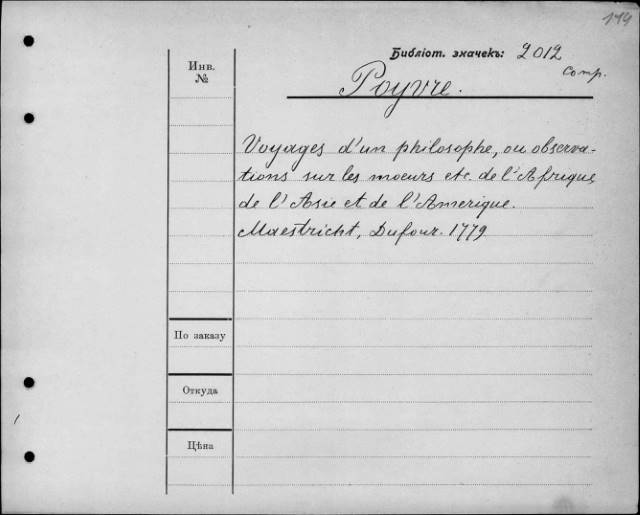 144
Библіот. значекъ: 2012
comp.
Инв.
№
Poyvre.
Voyages d'un philosophe, ou observa-
tions sur les moeurs etc. de l'Afrique,
de l'Asie et de l'Amerique.
Maestricht, Dufour. 1779
По заказу
Откуда
Цѣна